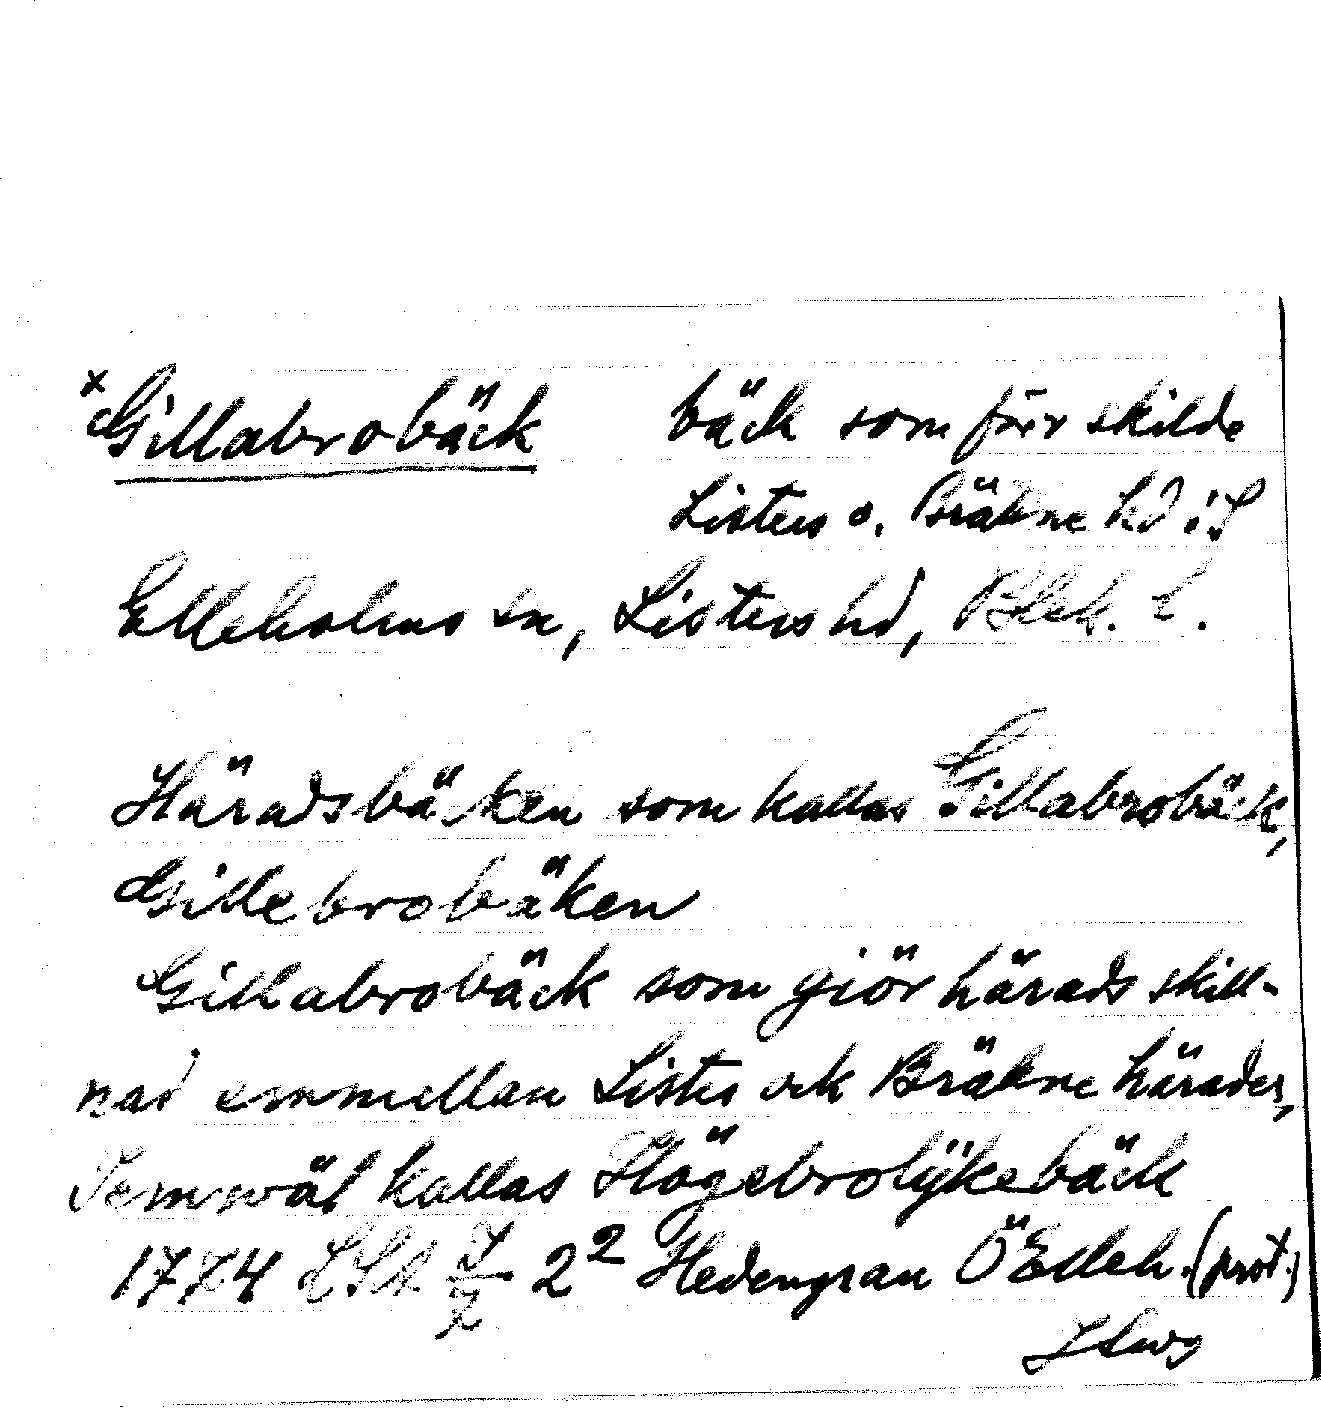 x Gillabrobäck bäck som förr skilde
Listers o. Bräkne hd i S
Elleholms sn, Listers hd, Blek. l.
Häradsbäken som kallas Gillabrobäck,
Gillebrobäken
Gillabrobäck som giör härads skill-
nad emmellan Listers ock Bräkne härader,
Jemwäl kallas Högebrolÿkebäck
1774 LSA 2² Hedengran Ö Elleh. (prot.)